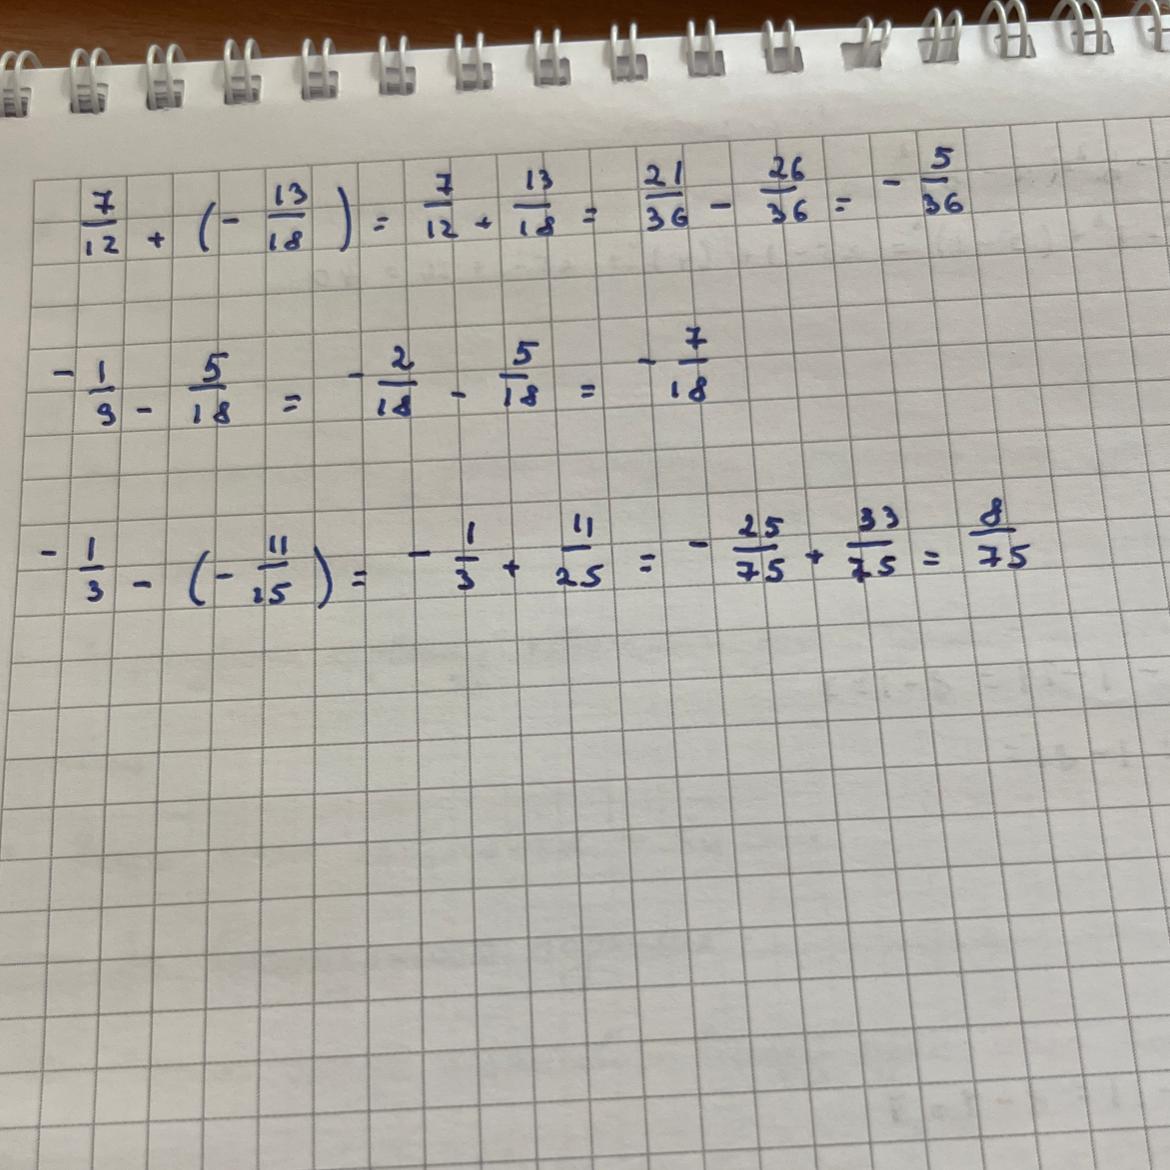 7/12 + (- 13/18) = 7/12 + 13/18 = 21/36 - 26/36 = - 5/36
- 1/9 - 5/18 = - 2/18 - 5/18 = - 7/18
- 1/3 - (- 11/25) = - 1/3 + 11/25 = - 25/75 + 33/75 = 8/75